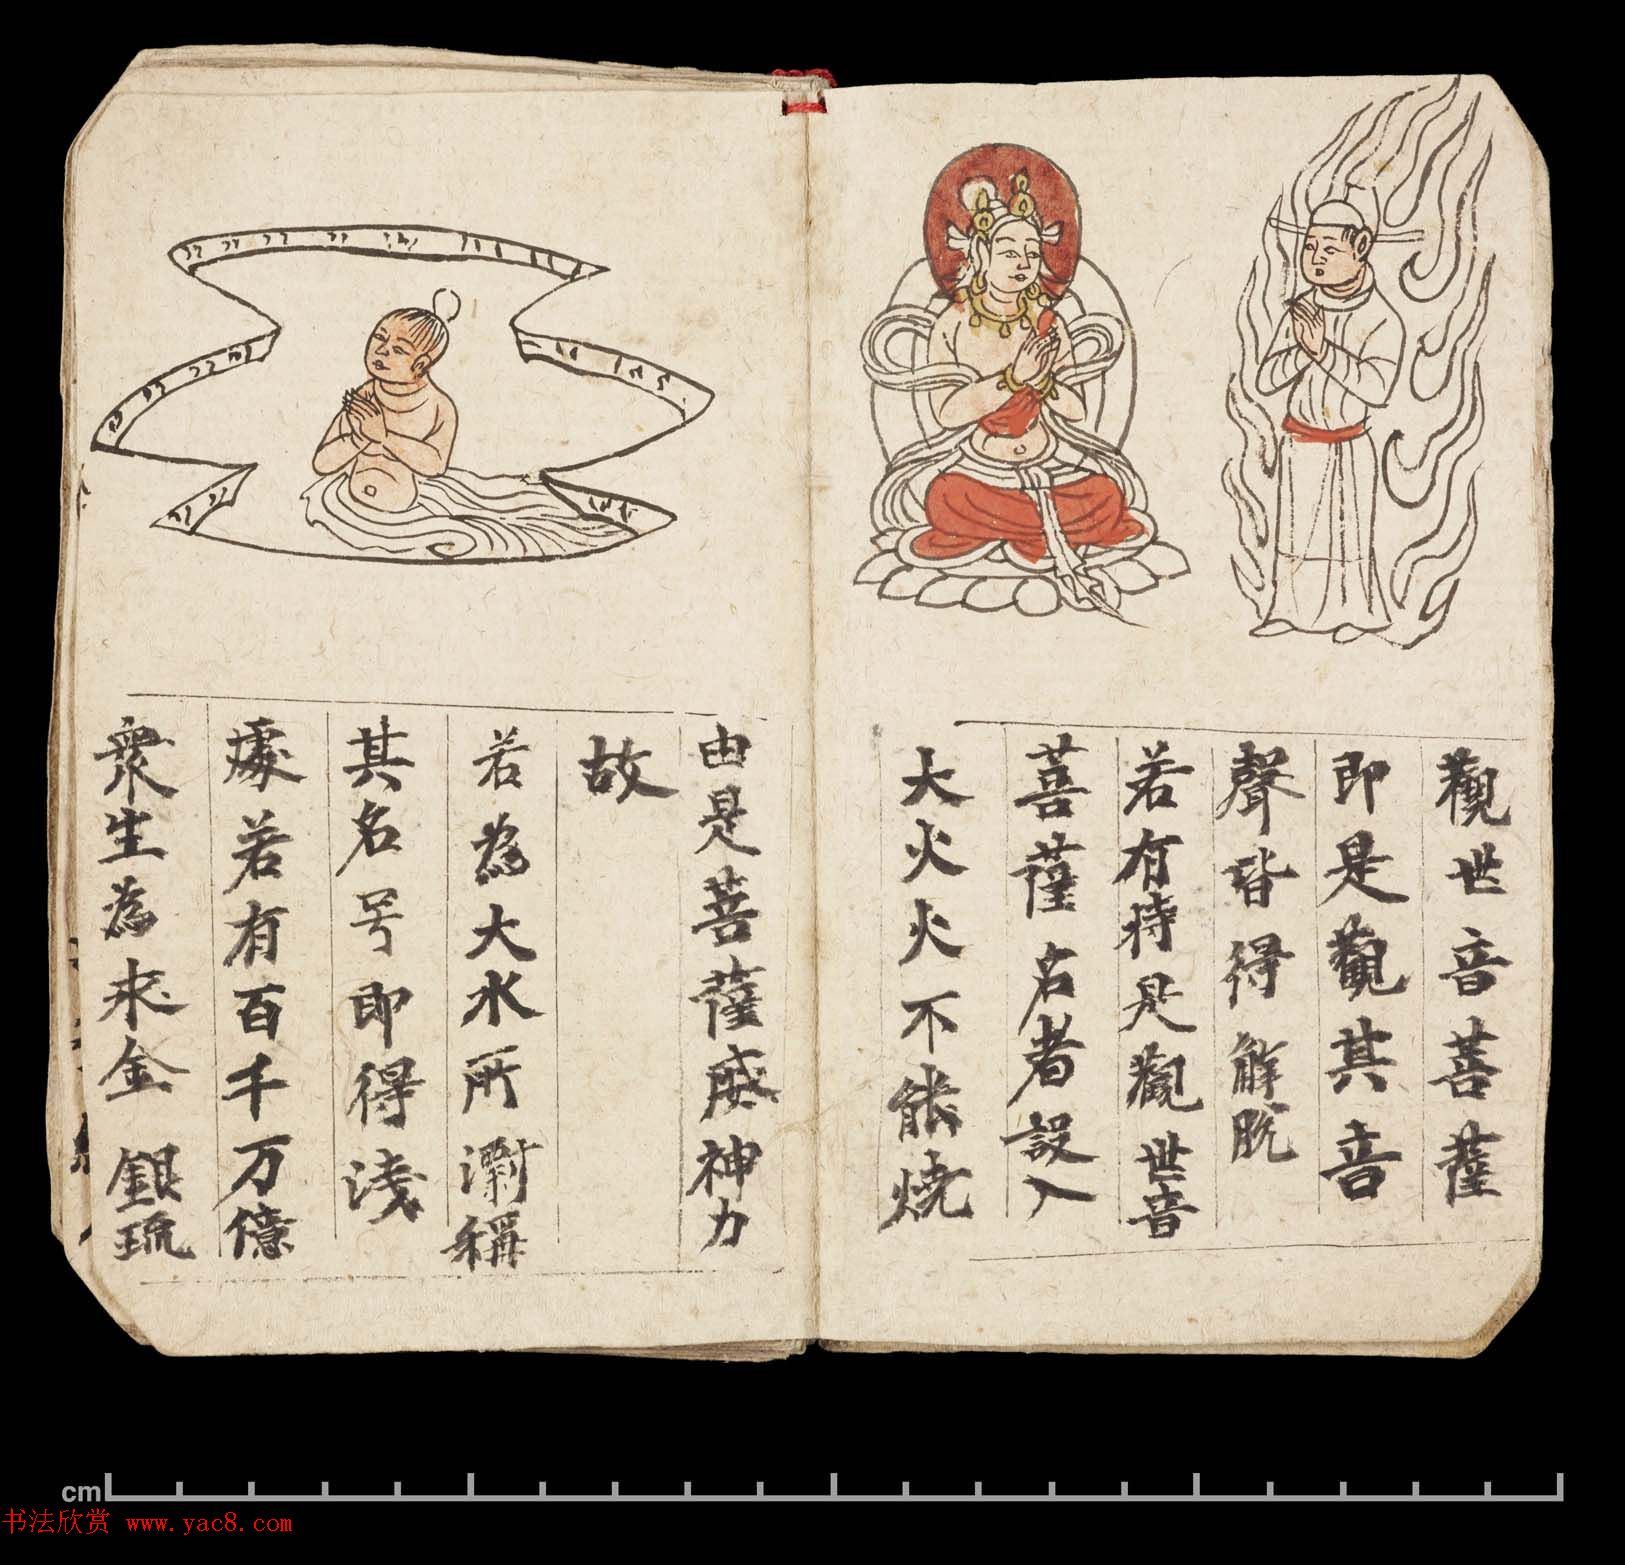 觀世音菩薩
即是觀其音
聲皆得解脫
若有持是觀世音
菩薩名者設入
大火火不能燒
由是菩薩威神力
故
若為大水所漂稱
其名号即得淺
處若有百千万億
衆生為求金銀琉
cm
书法欣赏 www.yac8.com